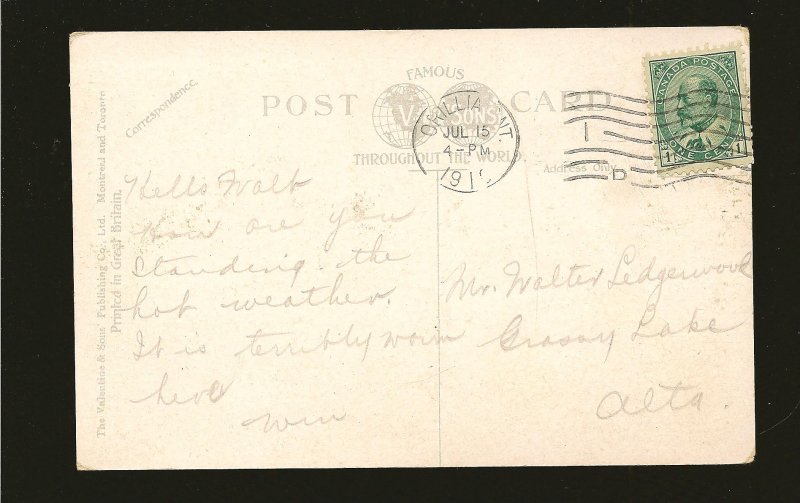 FAMOUS
POST CARD
V & SONS
THROUGHOUT THE WORLD.
Correspondence.
Address Only
The Valentine & Sons' Publishing Co., Ltd. Montreal and Toronto
Printed in Great Britain.
ORILLIA ONT.
JUL 15
4-PM
191
D
CANADA POSTAGE
1 ONE CENT 1
Hello Walt
How are you
standing the
hot weather.
It is terribly warm
here
Win
Mr. Walter Ledgerwood
Grassy Lake
Alta.